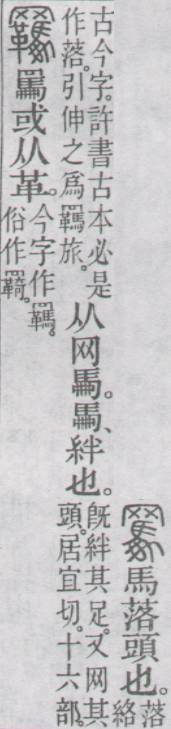 𦌭馬落頭也。落絡
古今字。許書古本必是作落。引伸之爲羈旅。从网馽。馽、絆也。旣絆其足。又网其頭。居宜切。十六部。
羈𦌭或从革。今字作羈。俗作羇。